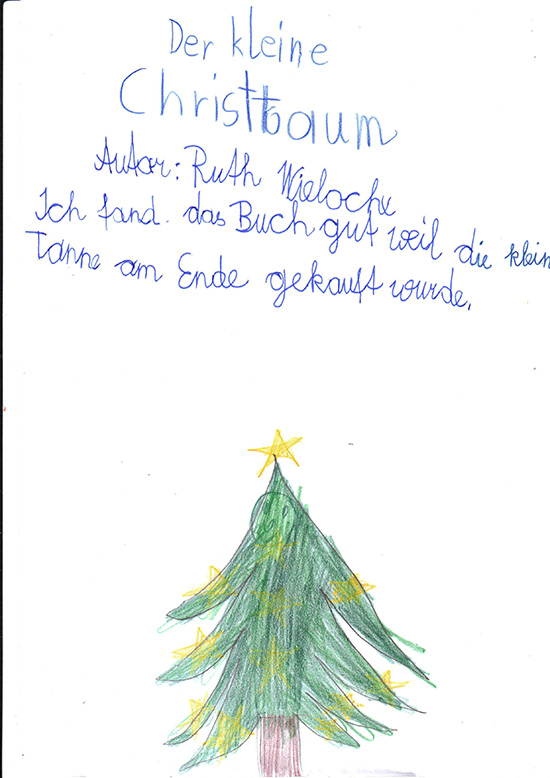 Der kleine
Christbaum
Autor: Ruth Wielocke
Ich fand das Buch gut weil die klein
Tanne am Ende gekauft wurde.